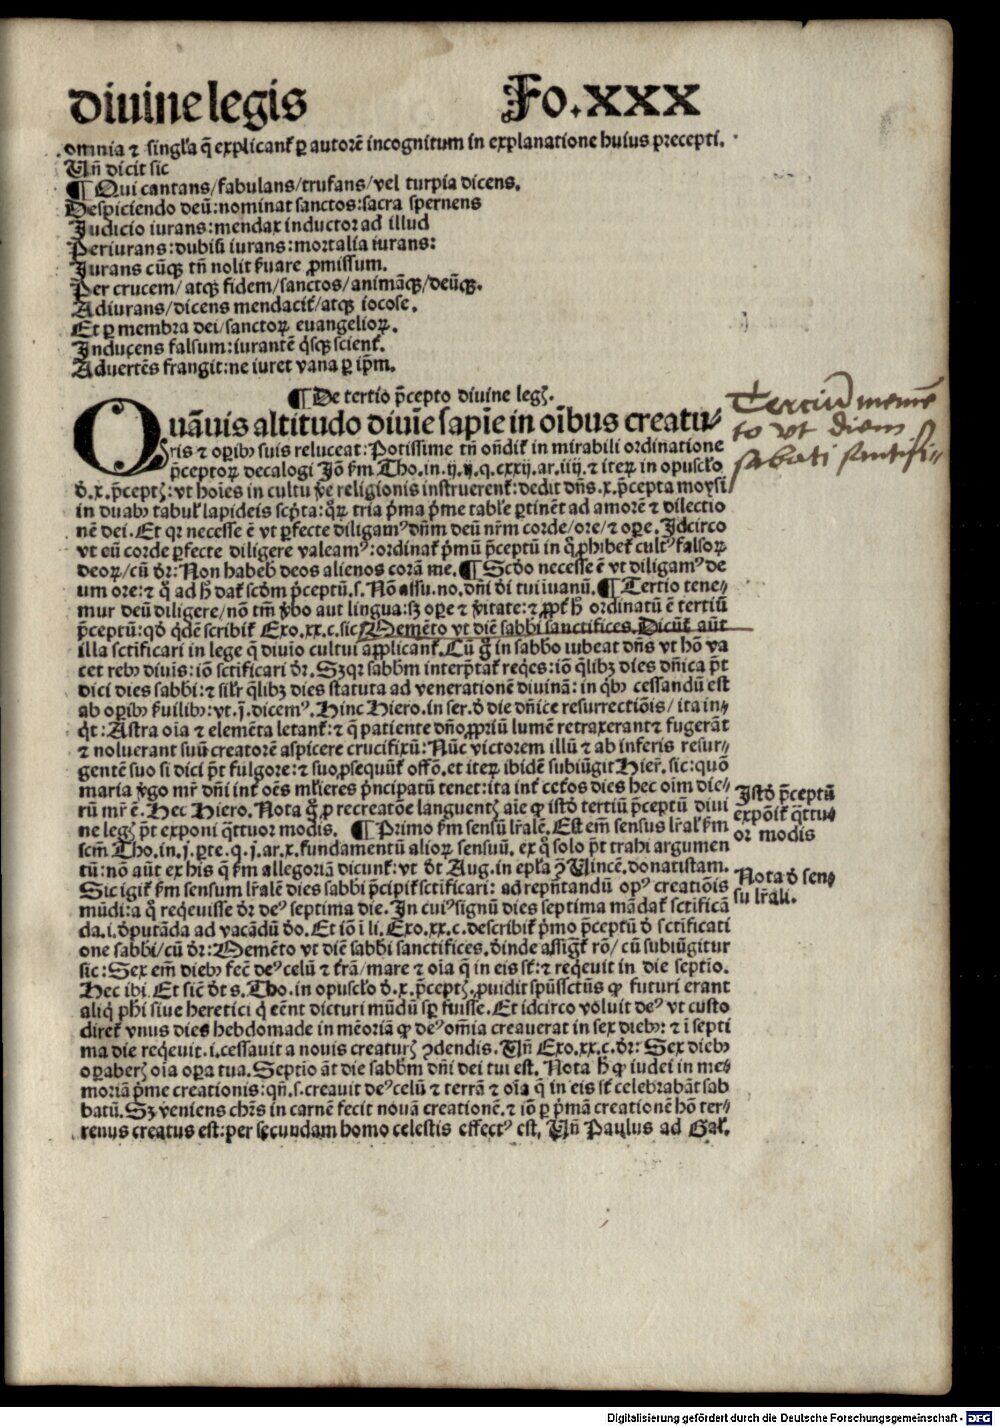 diuine legis Fo.XXX
omnia ⁊ singl'a q̄ explicant᷑ ꝑ autorē incognitum in explanatione huius precepti.
Vn̄ dicit sic
¶ Qui cantans/fabulans/trufans/vel turpia dicens.
Despiciendo deū:nominat sanctos:sacra spernens
Judicio iurans:mendax inductor ad illud
Periurans:dubiū iurans:mortalia iurans:
Jurans cūqꝫ tn̄ nolit ẜuare ꝓmissum.
Per crucem/atqꝫ fidem/sanctos/animāqꝫ/deūqꝫ.
Adiurans/dicens mendacit᷑/atqꝫ iocose.
Et ꝑ membra dei/sanctoꝝ euangelioꝝ.
Inducens falsum:iurantē q̇sqꝫ scient᷑.
Aduertēs frangit:ne iuret vana ꝑ ip̄m.
¶ De tertio p̄cepto diuine legꝭ.
Quāuis altitudo diuīe sapīe in oībus creatu⸗
ris ⁊ oꝑibꝰ suis reluceat:Potissime tn̄ on̄dit᷑ in mirabili ordinatione
p̄ceptoꝝ decalogi Jō ẜm Tho.in.ij.ij.q.cxxij.ar.iiij.⁊ iteꝝ in opusc̄lo
ď.x.p̄ceptꝭ:vt hoīes in cultu ṽe religionis instruerent᷑:dedit dn̄s.x.p̄cepta moysi
in duabꝰ tabul' lapideis sc̄pta:qꝝ tria p̄ma p̄me table ꝑtinēt ad amorē ⁊ dilectio
nē dei.Et qꝛ necesse ē vt ꝑfecte diligamꝰ dn̄m deū nr̄m corde/ore/⁊ oꝑe.Jdcirco
vt eū corde ꝑfecte diligere valeamꝰ:ordinat᷑ p̄mū p̄ceptū in q̊ ꝓhibet᷑ cultꝰ falsoꝝ
deoꝝ/cū ďr:Non habebꝭ deos alienos corā me.¶ Scďo necesse ē vt diligamꝰ de
um ore:⁊ q̊ ad hͦ dat᷑ scďm p̄ceptū.s.Nō assu.no.dn̄i ďi tui īuanū.¶ Tertio tene⸗
mur deū diligere/nō tm̄ ṽbo aut lingua:sꝫ oꝑe ⁊ ṽitate:⁊ ꝓpt᷑ hͦ ordinatū ē tertiū
p̄ceptū:qď q̇dē scribit᷑ Exo.xx.c.sic Memēto vt diē sabbi sanctifices.Dicūt᷑ aūt
illa sctificari in lege q̄ diuīo cultui applicant᷑.Cū g̊ in sabbo iubeat dn̄s vt hō va
cet rebꝰ diuīs:iō sctificari ďr.Sꝫ qꝛ sabbm interp̄tat᷑ req̇es:iō q̄libꝫ dies dn̄ica p̄t
dici dies sabbi:⁊ silr q̄libꝫ dies statuta ad venerationē diuinā:in q̇bꝰ cessandū est
ab oꝑibꝰ ẜuilibꝰ:vt.j.dicemꝰ.Hinc Hiero.in ser.ď die dn̄ice resurrectiōis/ita in⸗
q̇t:Astra oīa ⁊ elemēta letant᷑:⁊ q̄ patiente dn̄o ꝓpriū lumē retraxerant ⁊ fugerāt
⁊ noluerant suū creatorē aspicere crucifixū:Nūc victorem illū ⁊ ab inferis resur⸗
gentē suo si dici p̄t fulgore:⁊ suo ꝓsequūt᷑ offō.et iteꝝ ibidē subiūgit Hier̄.sic:quō
maria ṽgo mr̄ dn̄i int᷑ oēs ml̓ieres p̄ncipatū tenet:ita int᷑ cet᷑os dies hec oīm die⸗
rū mr̄ ē.Hec Hiero.Nota g̊ ꝓ recreatōe languentꝭ aīe ꝙ istď tertiū p̄ceptū diui
ne legꝭ p̄t exponi q̄ttuor modis. ¶ Primo ẜm sensū lr̄alē.Est em̄ sensus lr̄al' ẜm
scm̄ Tho.in.j.ꝑte.q.j.ar.x.fundamentū alioꝝ sensuū.ex q̊ solo p̄t trahi argumen
tū:nō aūt ex his q̄ ẜm allegoriā dicunt᷑:vt ďt Aug.in epl̓a ꝯ Vincē.donatistam.
Sic igit᷑ ẜm sensum lr̄alē dies sabbi p̄cipit᷑ sctificari: ad rep̄ntandū opꝰ creatiōis
mūdi:a q̊ reqeuisse ďr deꝰ septima die.In cuiꝰ signū dies septima mādat᷑ sctificā
da.i.ďputāda ad vacādū ďo.Et iō ī li.Exo.xx.c.describit᷑ p̄mo p̄ceptū ď sctificati
one sabbi/cū ďr:Memēto vt diē sabbi sanctifices.ďinde assigt᷑ rō/cū subiūgitur
sic:Sex em̄ diebꝰ fecē deꝰ celū ⁊ t᷑rā/mare ⁊ oīa q̄ in eis st᷑:⁊ reqeuit in die septīo.
Hec ibi.Et sicē ďt s.Tho.in opusc̄lo ď.x.p̄ceptꝭ.ꝓuidit spūssctūs ꝙ futuri erant
aliq̇ phi siue heretici q̇ eēnt dicturi mūdū sꝑ fuisse.Et idcirco voluit deꝰ vt custo
diret᷑ vnus dies hebdomade in mēoriā ꝙ deꝰ om̄ia creauerat in sex diebꝰ:⁊ ī septi
ma die reqeuit.i.cessauit a nouis creaturꝭ ꝯdendis.Vn̄ Exo.xx.c.ďr:Sex diebꝰ
oꝑaberꝭ oīa oꝑa tua.Septīo āt die sabbm dn̄i dei tui est.Nota hͦ ꝙ iudei in me⸗
moriā p̄me creationis:qn̄.s.creauit deꝰ celū ⁊ terrā ⁊ oīa q̄ in eis st᷑ celebrabāt sab
batū.Sꝫ veniens chr̄s in carnē fecit nouā creationē.⁊ iō ꝑ p̄mā creationē hō ter⸗
renus creatus est:per secundam homo celestis effectꝰ est. Vn̄ Paulus ad Gal'.
Terciū memē
to vt diem
sabati santifi⸗
Jstď p̄ceptū
expōit᷑ q̄ttu⸗
or modis
Nota ď sen⸗
su lr̄ali.
Digitalisierung gefördert durch die Deutsche Forschungsgemeinschaft - DFG